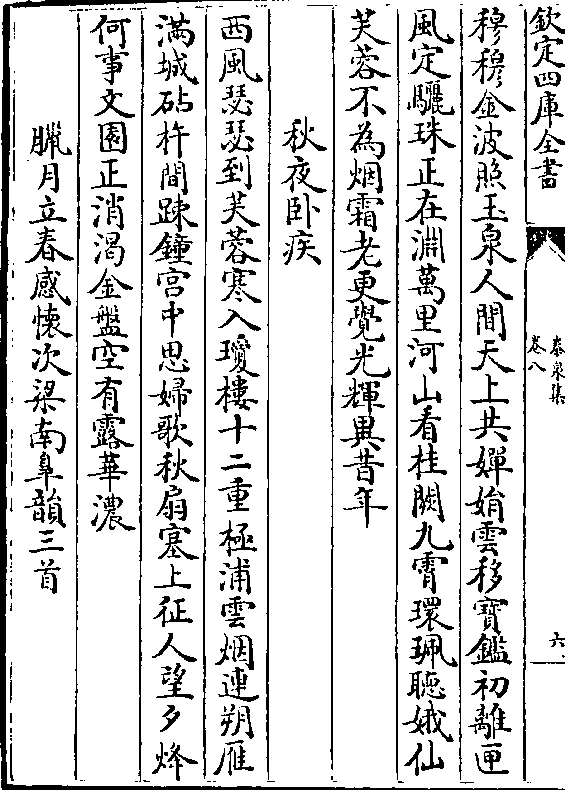 欽定四庫全書
泰泉集
卷八
六
穆穆金波照玉泉人間天上共嬋娟雲移寶鑑初離匣
風定驪珠正在淵萬里河山看桂闕九霄環珮聽娥仙
芙蓉不為烟霜老更覺光輝異昔年
秋夜卧疾
西風瑟瑟到芙蓉寒入瓊樓十二重極浦雲烟連朔雁
滿城砧杵間踈鐘宮中思婦歌秋扇塞上征人望夕烽
何事文園正消渴金盤空有露華濃
臘月立春感懷次梁南臯韻三首